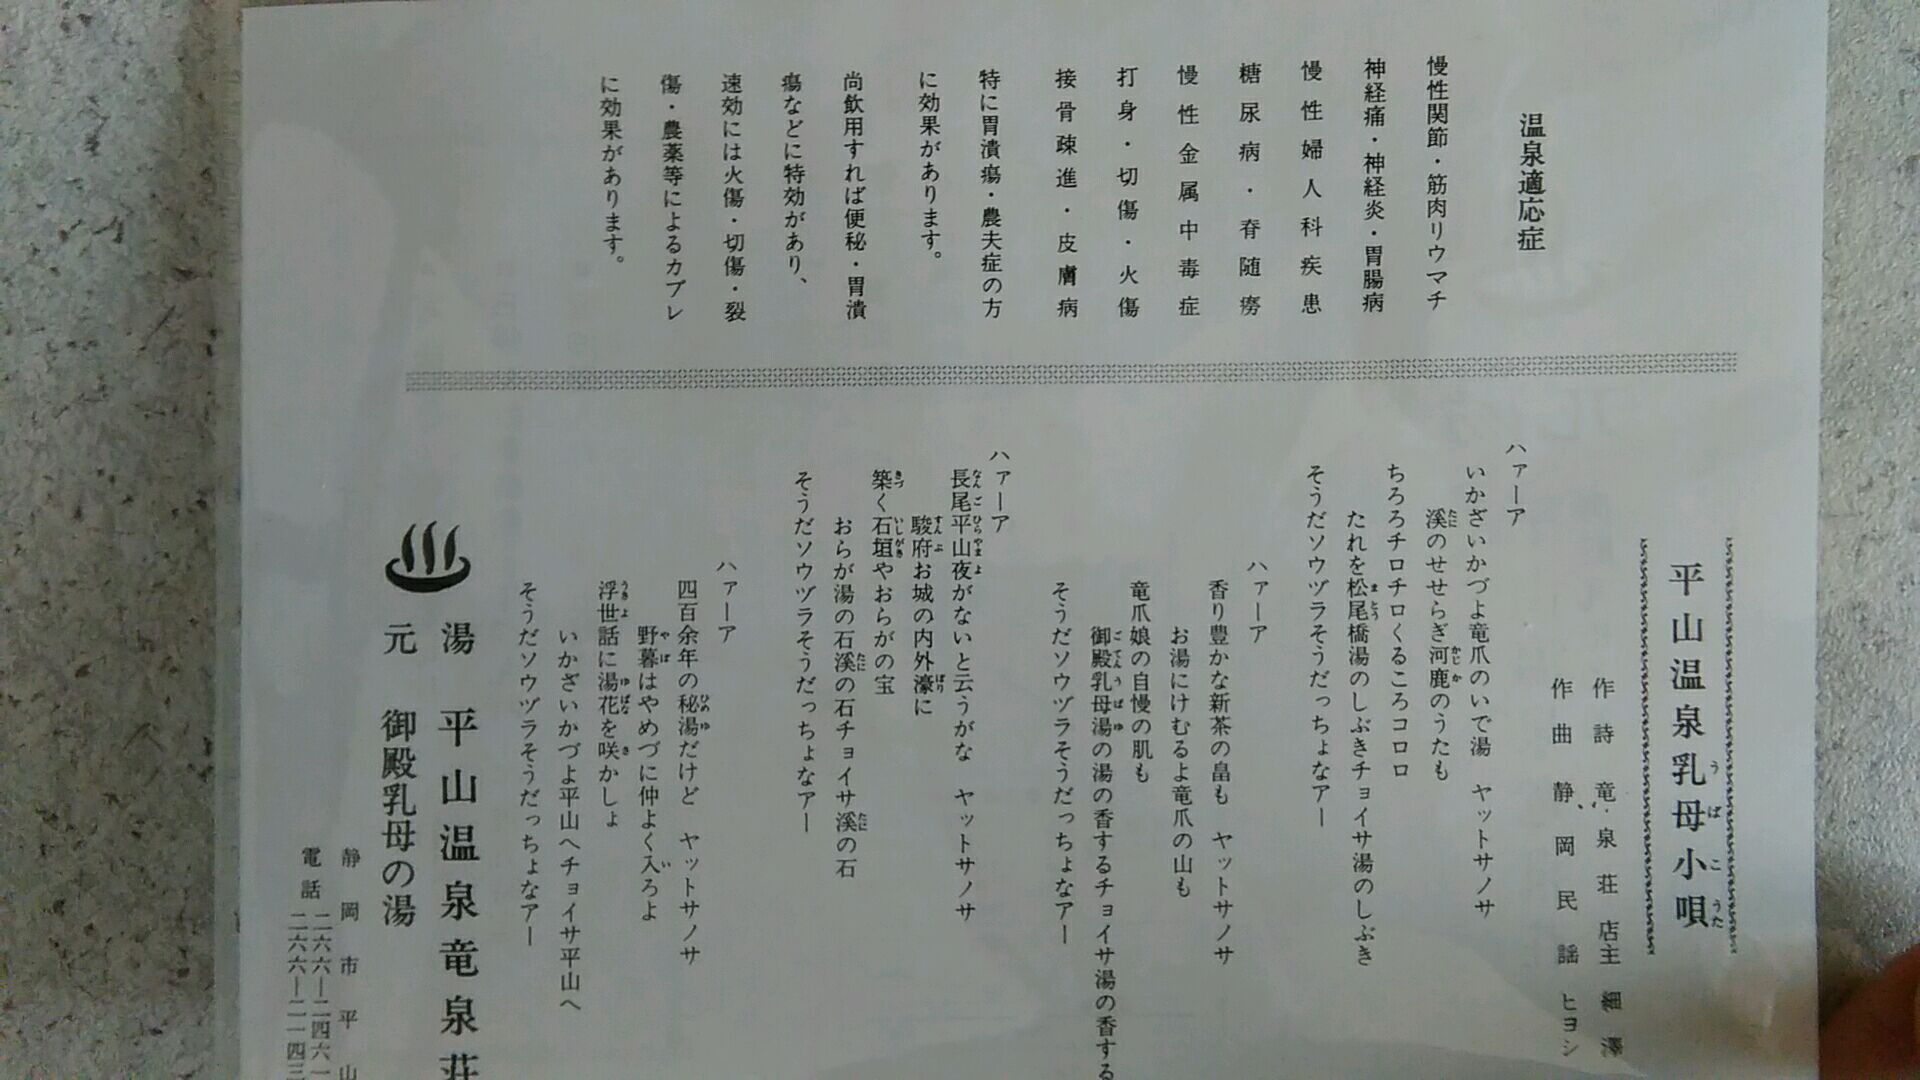 温泉適応症
慢性関節・筋肉リウマチ
神経痛・神経炎・胃腸病
慢性婦人科疾患
糖尿病・脊随癆
慢性金属中毒症
打身・切傷・火傷
接骨疎進・皮膚病
特に胃潰瘍・農夫症の方
に効果があります。
尚飲用すれば便秘・胃潰
瘍などに特効があり、
速効には火傷・切傷・裂
傷・農薬等によるカブレ
に効果があります。
平山温泉乳母小唄
作詩 竜泉荘店主 細澤
作曲 静岡民謡 ヒヨシ
ハァーア
いかざいかづよ竜爪のいで湯 ヤットサノサ
溪のせせらぎ河鹿のうたも
ちろろチロチロくるころコロロ
たれを松尾橋湯のしぶきチョイサ湯のしぶき
そうだソウヅラそうだっちょなアー
ハァーア
香り豊かな新茶の畠も ヤットサノサ
お湯にけむるよ竜爪の山も
竜爪娘の自慢の肌も
御殿乳母湯の湯の香するチョイサ湯の香する
そうだソウヅラそうだっちょなアー
ハァーア
長尾平山夜がないと云うがな ヤットサノサ
駿府お城の内外濠に
築く石垣やおらがの宝
おらが湯の石溪の石チョイサ溪の石
そうだソウヅラそうだっちょなアー
ハァーア
四百余年の秘湯だけど ヤットサノサ
野暮はやめづに仲よく入ろよ
浮世話に湯花を咲かしょ
いかざいかづよ平山へチョイサ平山へ
そうだソウヅラそうだっちょなアー
湯 平山温泉竜泉荘
元 御殿乳母の湯
静岡市平山
電話 二六六―二四六一
二六六―二一四三